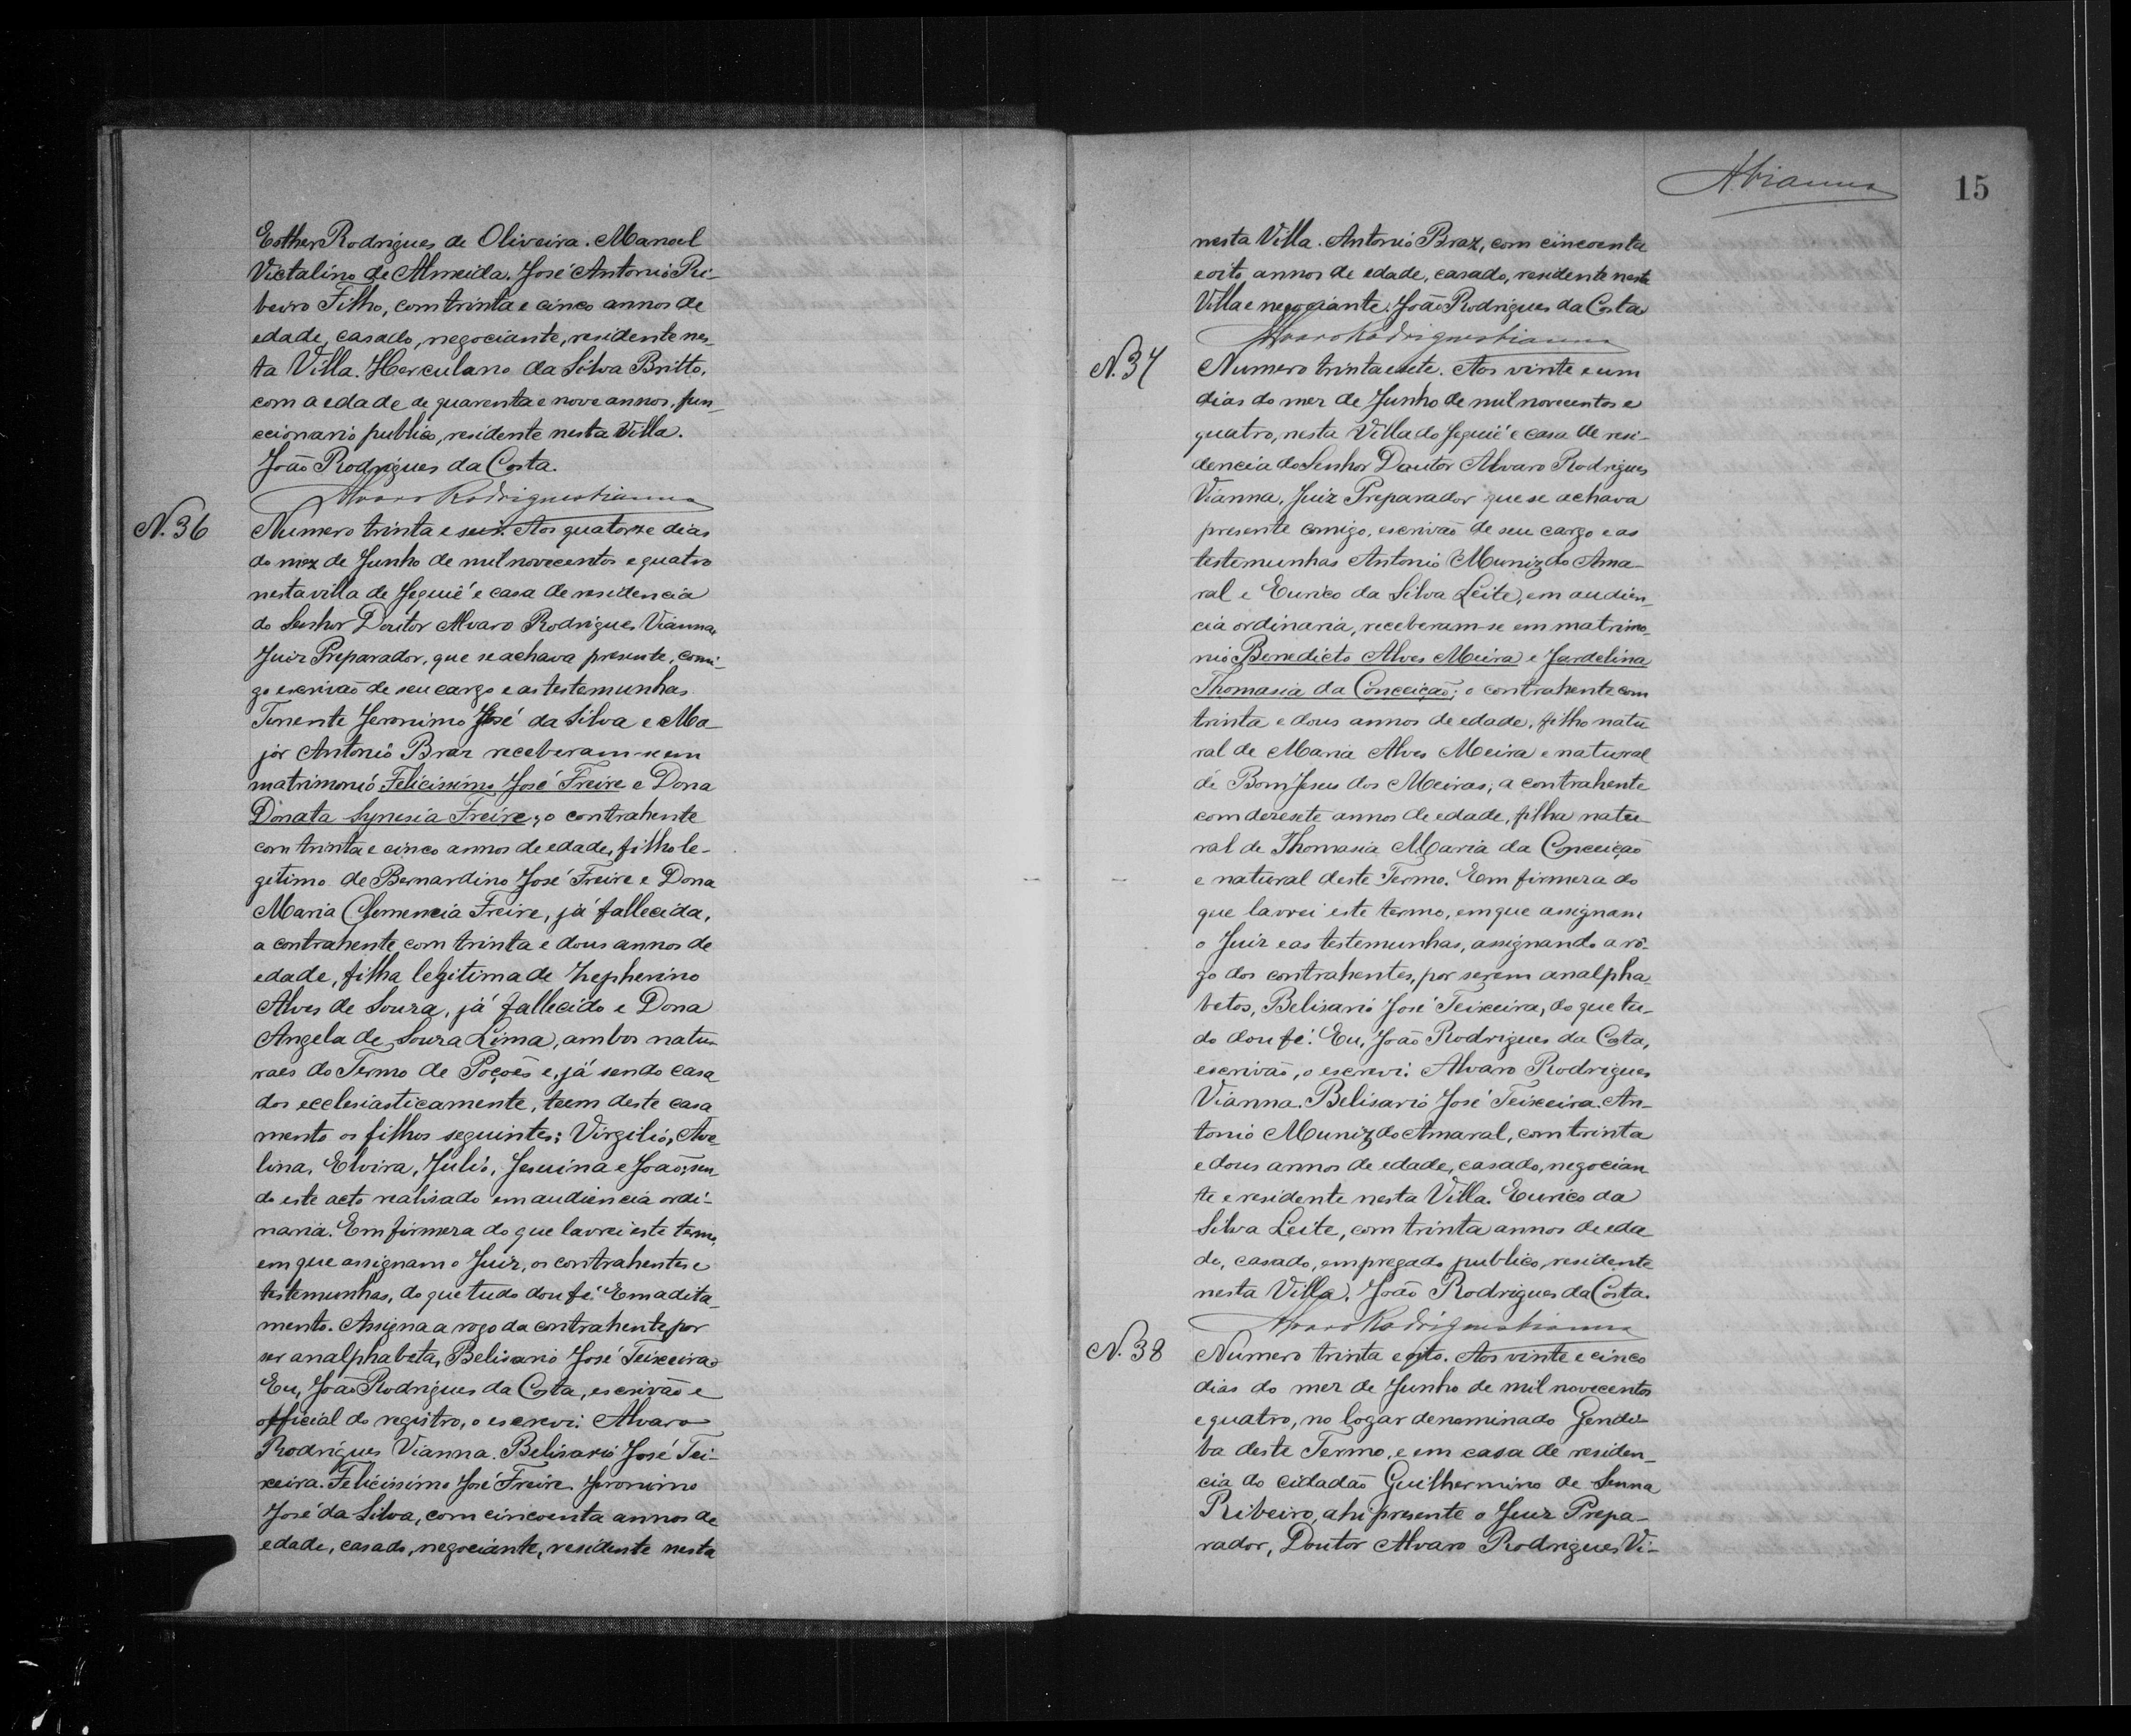 Esther Rodrigues de Oliveira. Manoel
Victalino de Almeida. José Antonio Ri-
beiro Filho, com trinta e cinco annos de
edade, casado, negociante, residente nes-
ta Villa. Herculano da Silva Britto,
com a edade de quarenta e nove annos, fun-
ccionario publico, residente nesta Villa.
João Rodrigues da Costa.
Alvaro Rodrigues Vianna
N. 36
Numero trinta e seis. Aos quatorze dias
do mez de Junho de mil novecentos e quatro
nesta villa de Jequié e casa de residencia
do Senhor Doutor Alvaro Rodrigues Vianna,
Juiz Preparador, que se achava presente, comi-
go escrivão de seu cargo e as testemunhas
Tenente Jeronimo José da Silva e Ma-
jor Antonio Braz receberam-se em
matrimonio Felicissimo José Freire e Dona
Donata Synesia Freire; o contrahente
com trinta e cinco annos de edade, filho le-
gitimo de Bernardino José Freire e Dona
Maria Clemencia Freire, já fallecida,
a contrahente com trinta e dous annos de
edade, filha legitima de Zepherino
Alves de Souza, já fallecido e Dona
Angela de Souza Lima, ambos natu-
raes do Termo de Poções e, já sendo casa
dos ecclesiasticamente, teem deste casa
mento os filhos seguintes: Virgilio, Ave-
lina, Elvira, Julio, Jesuina e João; sen-
do este acto realisado em audiencia ordi-
naria. Em firmeza do que lavrei este termo,
em que assignam o Juiz, os contrahentes e
testemunhas, do que tudo dou fé. Em adita-
mento. Assigna a rogo da contrahente por
ser analphabeta, Belisario José Teixeira.
Eu, João Rodrigues da Costa, escrivão e
official do registro, o escrevi. Alvaro
Rodrigues Vianna. Belisario José Tei-
xeira. Felicissimo José Freire. Jeronimo
José da Silva, com cincoenta annos de
edade, casado, negociante, residente nesta
AVianna
15
nesta Villa. Antonio Braz, com cincoenta
e oito annos de edade, casado, residente nesta
Villa e negociante. João Rodrigues da Costa
Alvaro Rodrigues Vianna
N. 37
Numero trinta e sete. Aos vinte e um
dias do mez de Junho de mil novecentos e
quatro, nesta Villa do Jequié e casa de resi-
dencia do Senhor Doutor Alvaro Rodrigues
Vianna, Juiz Preparador que se achava
presente comigo, escrivão de seu cargo e as
testemunhas Antonio Muniz do Ama-
ral e Eurico da Silva Leite, em audien-
cia ordinaria, receberam-se em matrimo-
nio Benedicto Alves Meira e Jardelina
Thomasia da Conceição; o contrahente com
trinta e dous annos de edade, filho natu
ral de Maria Alves Meira e natural
de Bom Jesus dos Meiras; a contrahente
com dezesete annos de edade, filha natu-
ral de Thomasia Maria da Conceição
e natural deste Termo. Em firmeza do
que lavrei este termo, em que assignam
o Juiz e as testemunhas, assignando a ro-
go dos contrahentes, por serem analpha
betos, Belisario José Teixeira, do que tu-
do dou fé. Eu, João Rodrigues da Costa,
escrivão, o escrevi. Alvaro Rodrigues
Vianna. Belisario José Teixeira. An-
tonio Muniz do Amaral, com trinta
e dous annos de edade, casado, negocian
te e residente nesta Villa. Eurico da
Silva Leite, com trinta annos de eda
de, casado, empregado publico, residente
nesta Villa. João Rodrigues da Costa.
Alvaro Rodrigues Vianna
N. 38
Numero trinta e oito. Aos vinte e cinco
dias do mez de Junho de mil novecentos
e quatro, no logar denominado Gendi-
ba deste Termo, e em casa de residen-
cia do cidadão Guilhermino de Senna
Ribeiro, ahi presente o Juiz Prepa-
rador, Doutor Alvaro Rodrigues Vi-